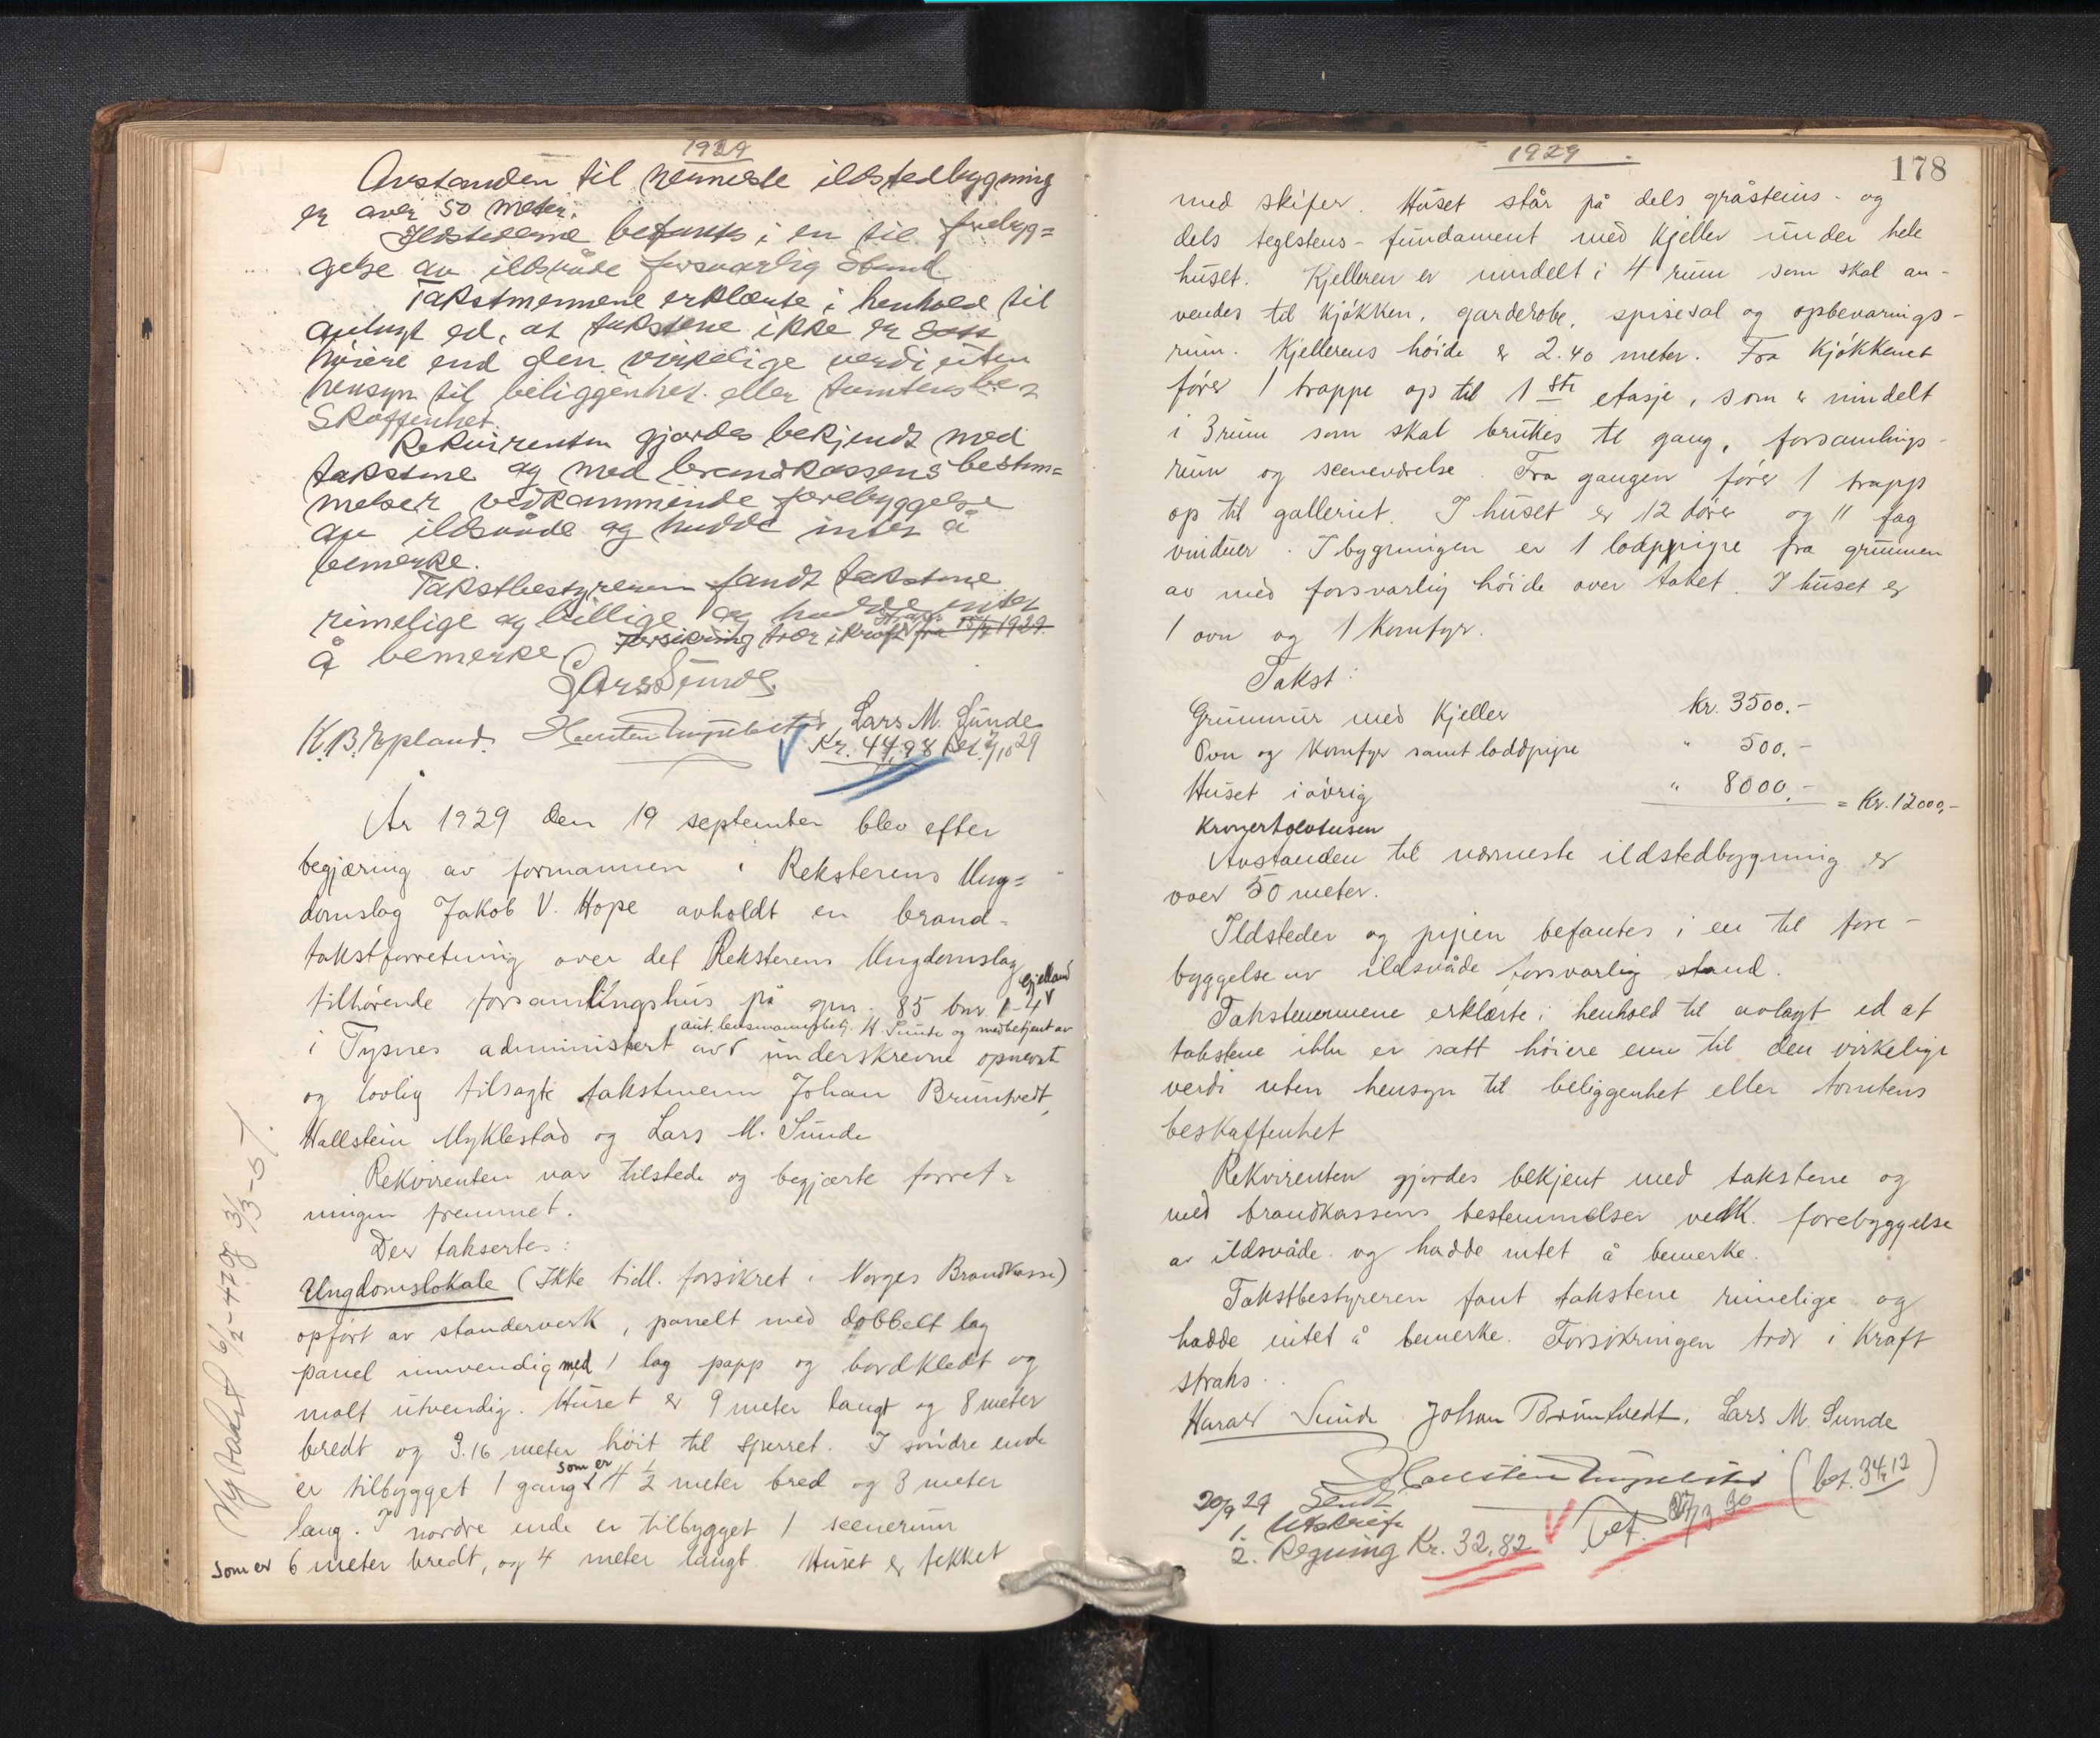 1929
Avstanden til nermeste ildstedbygning
er over 50 meter.
Ildstederne befantes i en til forebyg=
gelse av ildsvåde forsvarlig stand.
Takstmennene erklærte i henhold til
avlagt ed, at takstene ikke er satt
høiere end den virkelige verdi uten
hensyn til beliggenhet eller tomtens be=
skaffenhet.
Rekvirenten gjordes bekjendt med
takstene og med brandkassens bestem=
melser vedkommende forebyggelse
av ildsvåde og hadde intet å
bemerke.
Takstbestyreren fandt takstene
rimelige og billige og hadde intet
å bemerke. Forsikring trær i kraft straks fra 15/9 1929.
Lars Sunde
K.B. Epland. Lars M. Sunde
Kr. 44,98 bet. 2/10 29
År 1929 den 19 september blev efter
begjæring av formannen i Reksterens Ung=
domslag Jakob V. Hope avholdt en brand-
takstforretning over det Reksterens Ungdomslag
tilhørende forsamlingshus på gnr. 85 bnr. 1-4 Gjelland
i Tysnes administert av aut. lensmannsbetj. H. Sunde og medbetjent av underskrevne opnevnte
og lovlig tilsagte takstmenn Johan Bruntvedt,
Hallstein Myklestad og Lars M. Sunde
Rekvirenten var tilstede og begjærte forret=
ningen fremmet.
Der taksertes:
Ungdomslokale (Ikke tidl. forsikret i Norges Brandkasse)
opført av standerverk, panelt med dobbelt lag
panel innvendig med 1 lag papp og bordkledt og
malt utvendig. Huset er 9 meter langt og 8 meter
bredt og 3.16 meter høit til sperret. I søndre ende
er tilbygget 1 gang som er 4 1/2 meter bred og 3 meter
lang. I nordre ende er tilbygget 1 scenerum
som er 6 meter bredt, og 4 meter langt. Huset er tekket
Ny takst 6/2-47 og 3/3-57.
1929.
178
med skifer. Huset står på dels gråsteins- og
dels teglstens-fundament med kjeller under hele
huset. Kjelleren er inndelt i 4 rum som skal an-
vendes til kjøkken, garderobe, spisesal og opbevarings-
rum. Kjellerens høide er 2.40 meter. Fra kjøkkenet
fører 1 trappe op til 1ste etasje, som er inndelt
i 3 rum som skal brukes til gang, forsamlings-
rum og sceneværelse. Fra gangen fører 1 trapp
op til galleriet. I huset er 12 dører og 11 fag
vinduer. I bygningen er 1 loddpipe fra grunnen
av med forsvarlig høide over taket. I huset er
1 ovn og 1 komfyr.
Takst:
Grunnmur med kjeller kr. 3500.-
Ovn og komfyr samt loddpipe " 500.-
Huset i øvrig " 8000.- = Kr. 12000,-
Kronertolvtusen
Avstanden til nærmeste ildstedbygning er
over 50 meter.
Ildsteder og pipen befantes i en til fore-
byggelse av ildsvåde forsvarlig stand.
Takstmennene erklærte i henhold til avlagt ed at
takstene ikke er satt høiere enn til den virkelige
verdi uten hensyn til beliggenhet eller tomtens
beskaffenhet
Rekvirenten gjordes bekjent med takstene og
med brandkassens bestemmelser vedk. forebyggelse
av ildsvåde og hadde intet å bemerke.
Takstbestyreren fant takstene rimelige og
hadde intet å bemerke. Forsikringen trær i kraft
straks.
Harald Sunde Johan Bruntvedt. Lars M. Sunde
(bet. 34,12)
20/9 29 Sendt
1. Utskrift
2. Regning Kr. 32,82 bet. 27/3 30